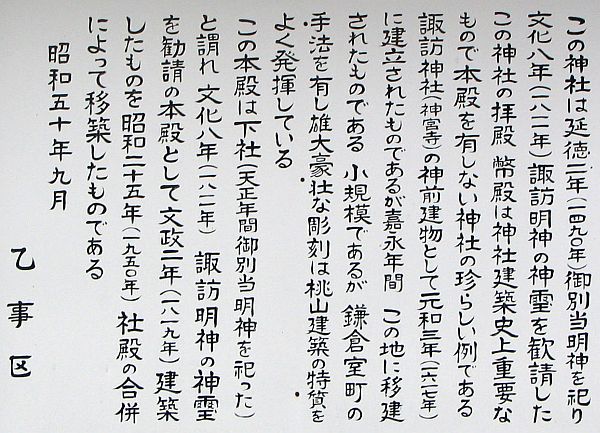 この神社は延徳二年(一四九〇年)御別当明神を祀り
文化八年(一八一一年)諏訪明神の神霊を歓請した
この神社の拝殿 幣殿は神社建築史上重要な
もので本殿を有しない神社の珍らしい例である
諏訪神社(神宮寺)の神前建物として元和三年(一六一七年)
に建立されたものであるが嘉永年間 この地に移建
されたものである 小規模であるが 鎌倉室町の
手法を有し雄大豪壮な彫刻は桃山建築の特質を
よく発揮している
この本殿は下社(天正年間御別当明神を祀った)
と謂れ 文化八年(一八一一年) 諏訪明神の神霊
を勧請の本殿として文政二年(一八一九年)建築
したものを昭和二十五年(一九五〇年) 社殿の合併
によって移築したものである
昭和五十年九月
乙事区